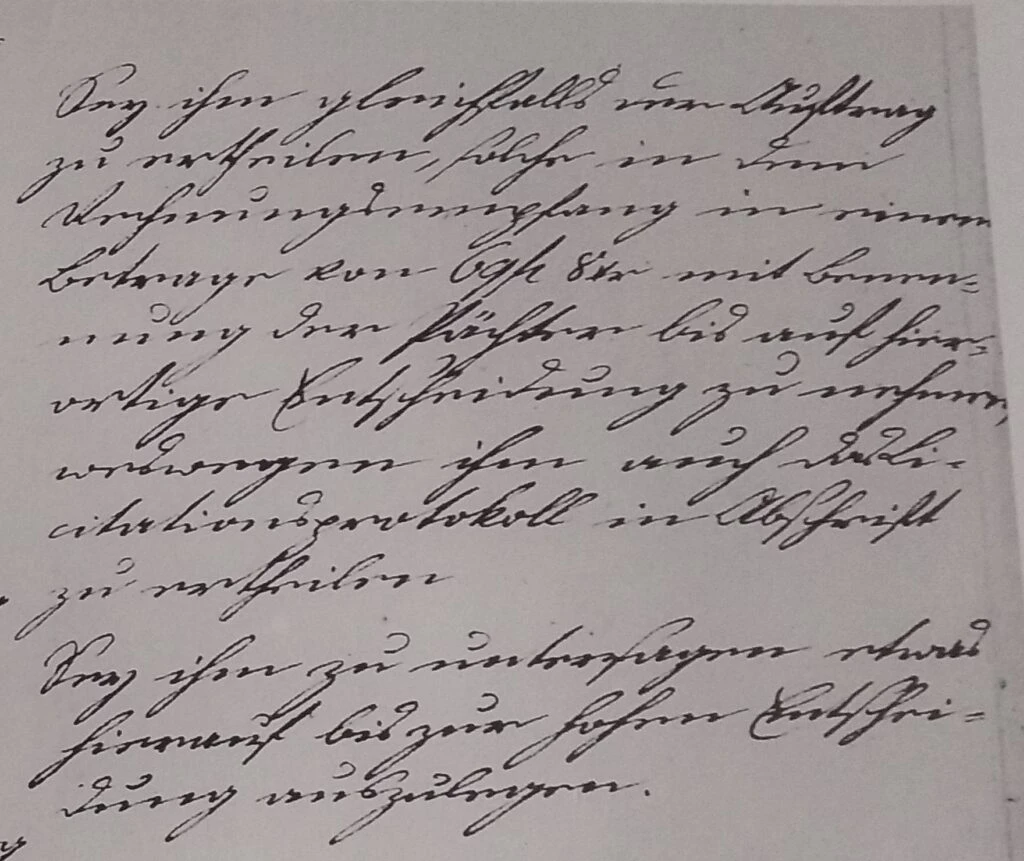 Sey ihm gleichfalls der Auftrag
zu ertheilen, solche in dem
Rechnungsempfang in einem
Betrage von 69 fl 8 kr mit Benen-
nung der Pächter bis auf hier-
ortige Entscheidung zu nehmen,
weswegen ihm auch das Li-
citationsprotokoll in Abschrift
zu ertheilen
Sey ihm zu untersagen etwas
hierauf bis zur hohen Entschei-
dung auszulegen.